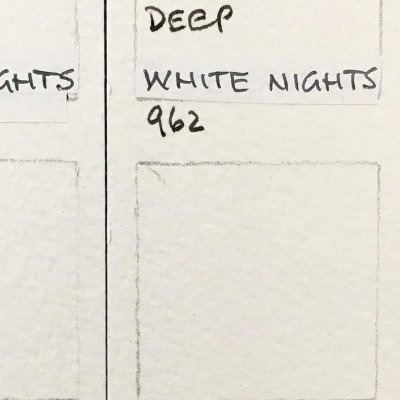 DEEP
GHTS WHITE NIGHTS
962